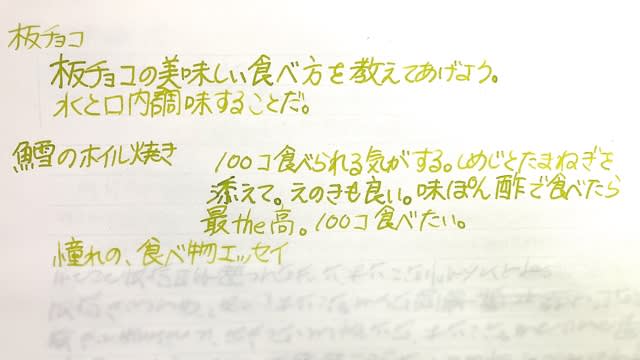 板チョコ
板チョコの美味しい食べ方を教えてあげよう。
水と口内調味することだ。
鱈のホイル焼き 100コ食べられる気がする。しめじとたまねぎを
添えて。えのきも良い。味ぽん酢で食べたら
最the高。100コ食べたい。
憧れの、食べ物エッセイ